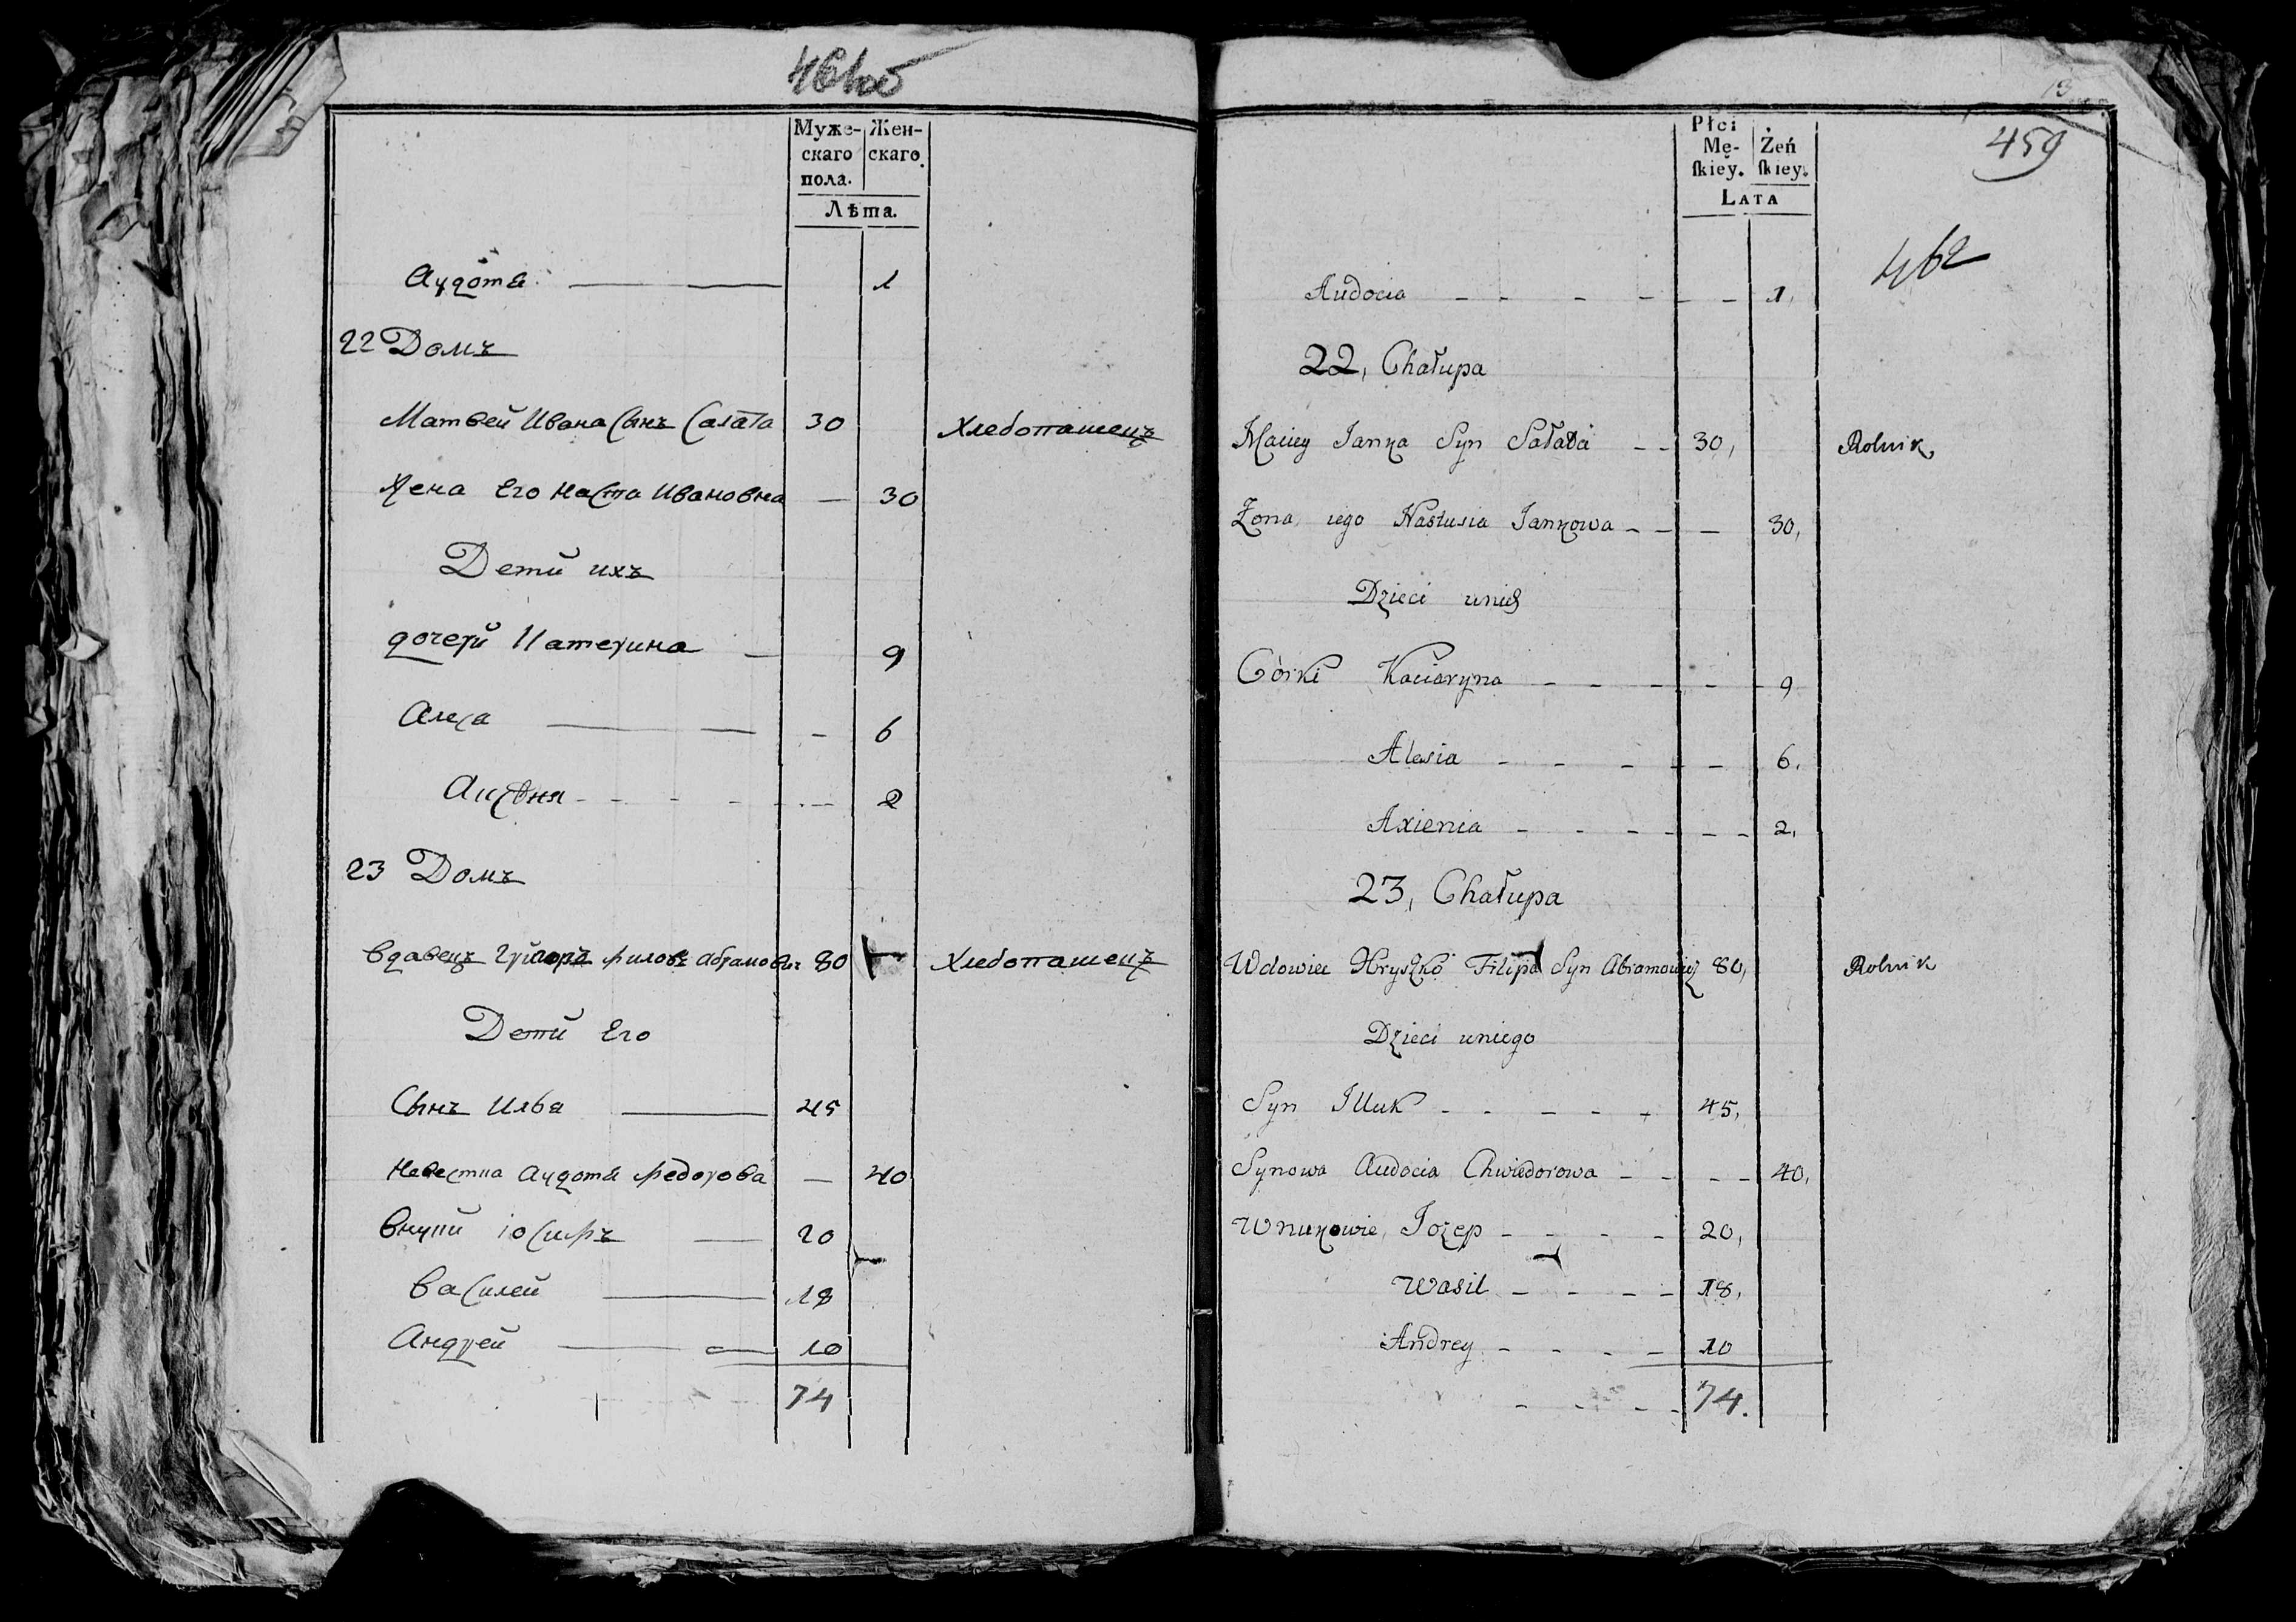 461об
Муже- Жен-
скаго скаго.
пола.
Лѣта.
Аудотя 1
22 Домъ
Матвей Ивана Сынъ Салата 30 Хлебопашецъ
Жена Его Наста Ивановна — 30
Дети ихъ
дочери Катерина — 9
Алеся — 6
Аксеня — 2
23 Домъ
Вдавецъ Григоръ Абрамовичъ 80 Хлебопашецъ
Дети Его
Сынъ Илья 45
Невестка Аудотя Федорова — 40
Внуки Іосифъ 20
Василей 18
Андрей 10
74
459
462
Płci
Mę- Żeń
ſkiey. ſkiey.
LATA
Audocia 1,
22, Chałupa
Maciey Janka Syn Sałata 30, Rolnik
Żona iego Nastusia Jankowa — 30,
Dzieci unich
Corki Kaciaryna 9
Alesia 6.
Axienia 2,
23, Chałupa
Wdowiec Hryszko Filipa Syn Abramowicz 80, Rolnik
Dzieci uniego
Syn Illuk 45,
Synowa Audocia Chwiedorowa 40,
Wnukowie, Jozep 20,
Wasil 18,
Andrey 10
74.